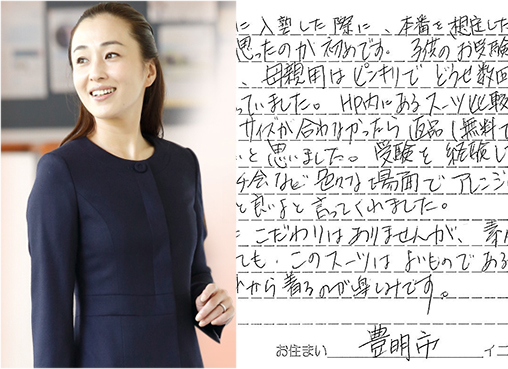 に入塾した際に、本番を想定した
思ったのが初めです。子供のお受験
、母親用はピンキリでどうせ数回
っていました。HP内にあるスーツ比較
サイズが合わなかったら返品し無料で
いと思いました。受験を経験し
チ会など色々な場面でアレンジ
と良いよと言ってくれました。
こだわりはありませんが、素
ても、このスーツはよいものである
から着るのが楽しみです。
お住まい 豊明市 イニ